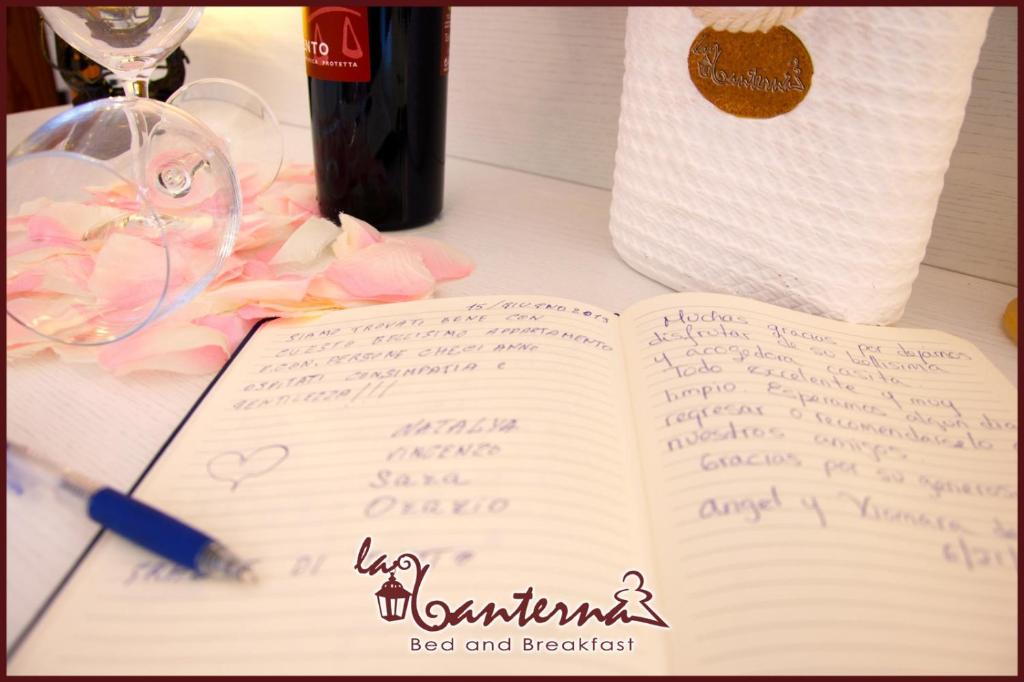 NTO
ICA PROTETTA
La Lanterna
15/GIUGNO 2019
SIAMO TROVATI BENE CON
CUESTO BELLISIMO APPARTAMENTO
E CON, PERSONE CHECI ANNO
OSPITATI CONSIMPATIA E
GENTILEZZA!!!
NATALYA
VINCENZO
Sara
Orazio
DI
Muchas gracias por dejarnos
disfrutar de su bellisima
y acogedora casita.
Todo excelente y muy
limpio Esperamos algun dia
regresar o recomendarselo a
nuestros amigos
Gracias por su generos
Angel y Xiomara de
6/21/
la Lanterna
Bed and Breakfast